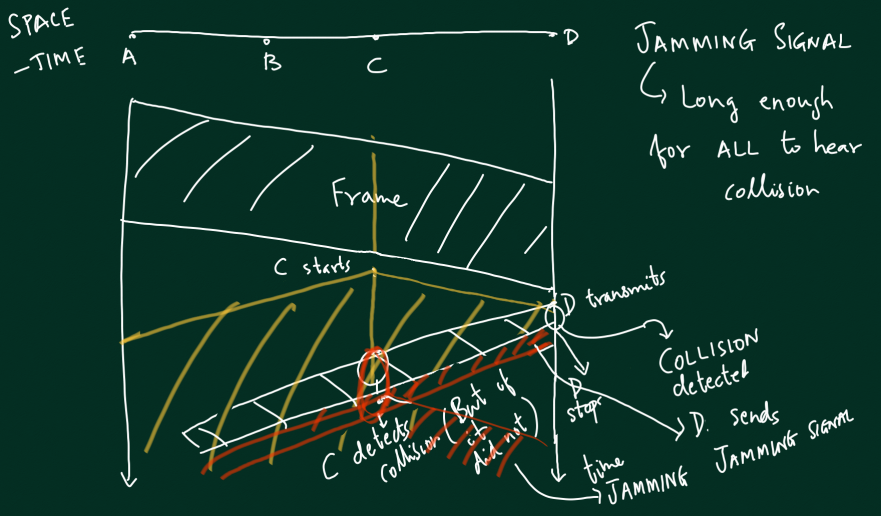 SPACE
-TIME
A
B
C
D
JAMMING SIGNAL
Long enough
for ALL to hear
collision
Frame
C starts
D transmits
COLLISION
detected
D
stops
D. sends
JAMMING SIGNAL
C detects
collision
(But if
it
did not)
time
JAMMING